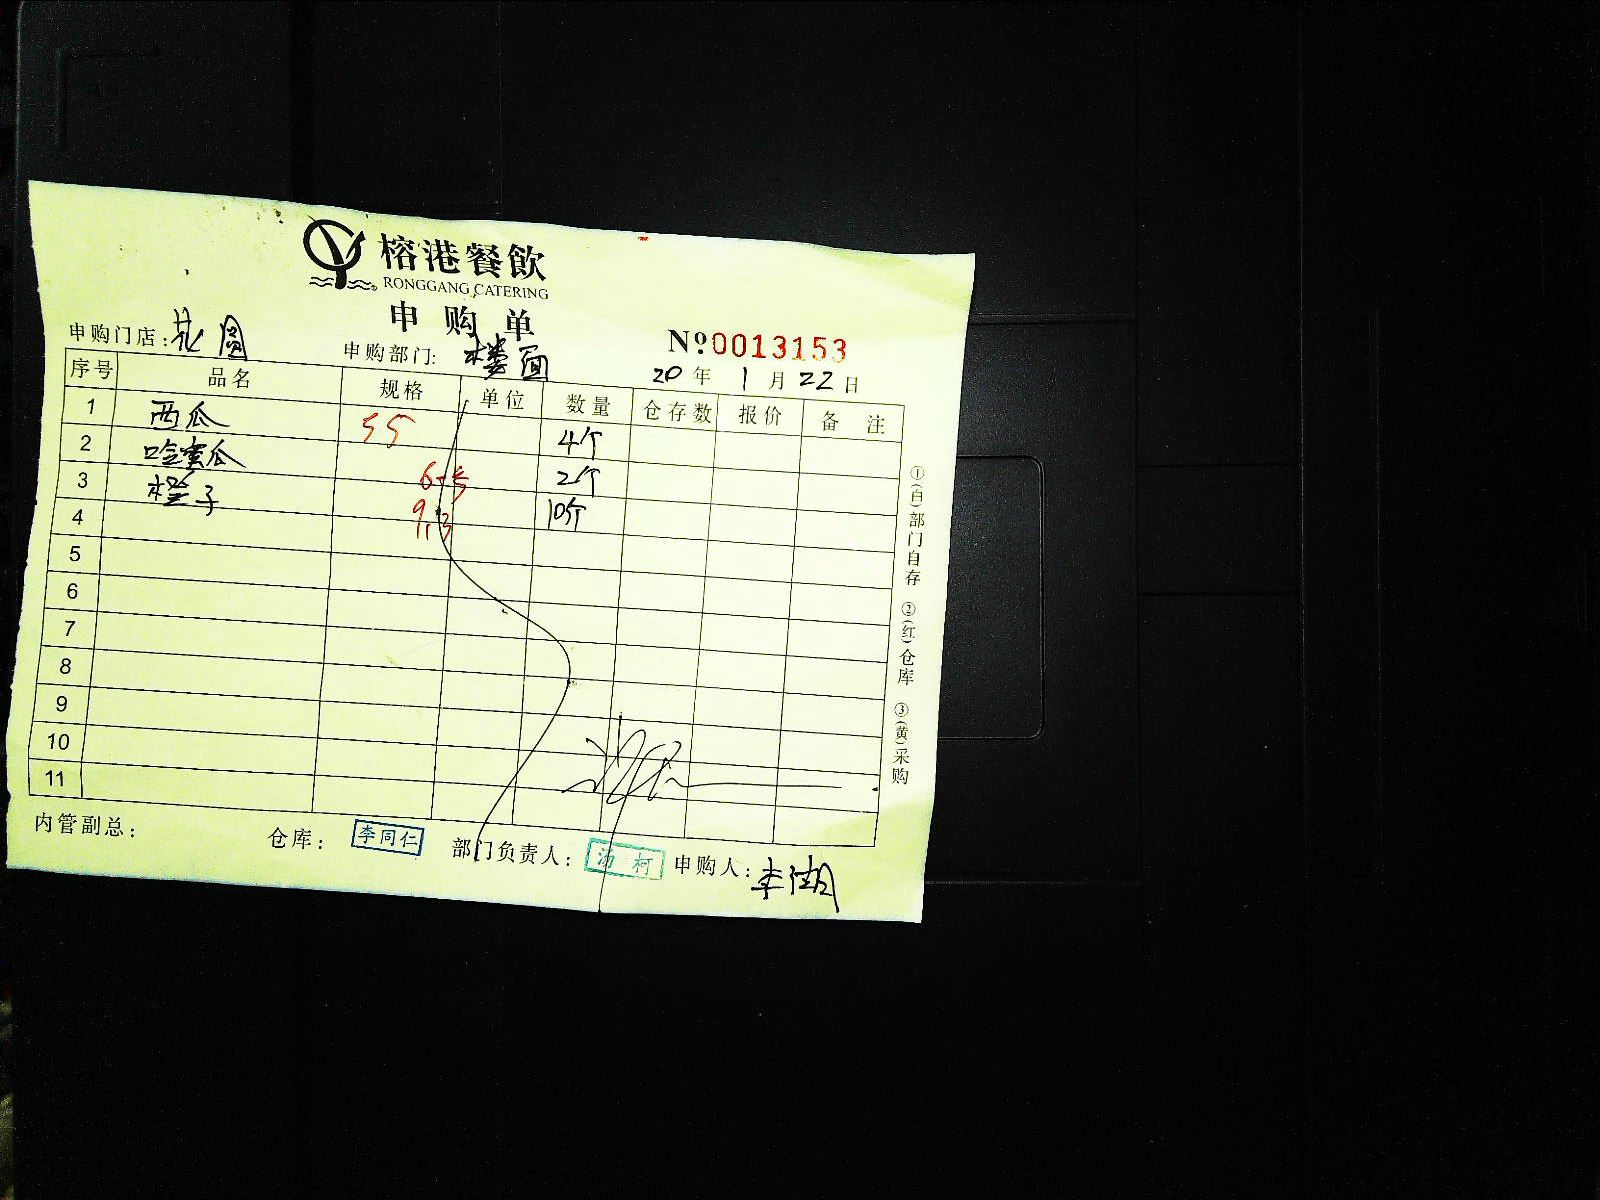 榕港餐飲
RONGGANG CATERING
申购单
申购门店：花圆 申购部门：楼面 №0013153
20年1月22日
序号 品名 规格 单位 数量 仓存数 报价 备注
1 西瓜 55 4个
2 哈蜜瓜 2个
3 橙子 10个
4
5
6
7
8
9
10
11
①(白)部门自存 ②(红)仓库 ③(黄)采购
内管副总： 仓库：李同仁 部门负责人：汤柯 申购人：李湖